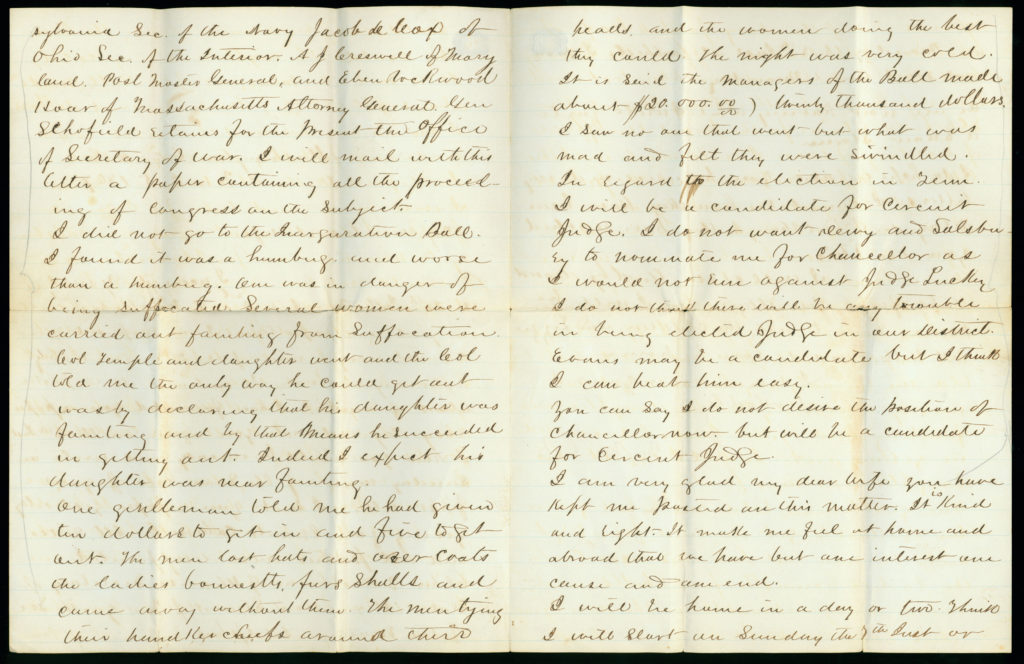 sylvania Sec. of the Navy Jacob de Cox of
Ohio Sec. of the Interior. A J Creswell of Mary
land. Post Master General, and Eben Rockwood
Hoar of Massachusetts Attorney General. Gen
Schofield retains for the Present the Office
of Secretary of War. I will mail with this
letter a paper containing all the proceed-
ing of Congress on the Subject.
I did not go to the Inauguration Ball.
I found it was a humbug. and worse
than a humbug. One was in danger of
being suffocated. Several women were
carried out fainting from Suffocation.
Col Temple and daughter went and the Col
told me the only way he could get out
was by declaring that his daughter was
fainting and by that Means he succeeded
in getting out. Indeed I expect his
daughter was near fainting.
One gentleman told me he had given
ten dollars to get in and five to get
out. The men lost hats and over coats
the ladies bonnetts, furs Shalls and
came away without them. The men tying
their handkerchiefs around their
heads, and the women doing the best
they could. The night was very cold.
It is said the managers of the Ball made
about $20.000.00/00) twenty thousand dollars.
I saw no one that went but what was
mad and felt they were swindled.
In regard to the election in Tenn.
I will be a candidate for Circuit
Judge. I do not want Dewy and Salsbu-
ry to nominate me for Chancellor as
I would not run against Judge Luckey
I do not there will be any trouble
in being elected Judge in our District.
Evans may be a candidate but I think
I can beat him easy.
You can Say I do not desire the position of
Chancellor now. but will be a candidate
for Circuit Judge.
I am very glad my dear Wife you have
kept me posted on this matter. It is Kind
and right. It make me feel at home and
abroad that we have but one interest one
cause and one end.
I will be home in a day or two. I think
I will Start on Sunday the 7th Inst or